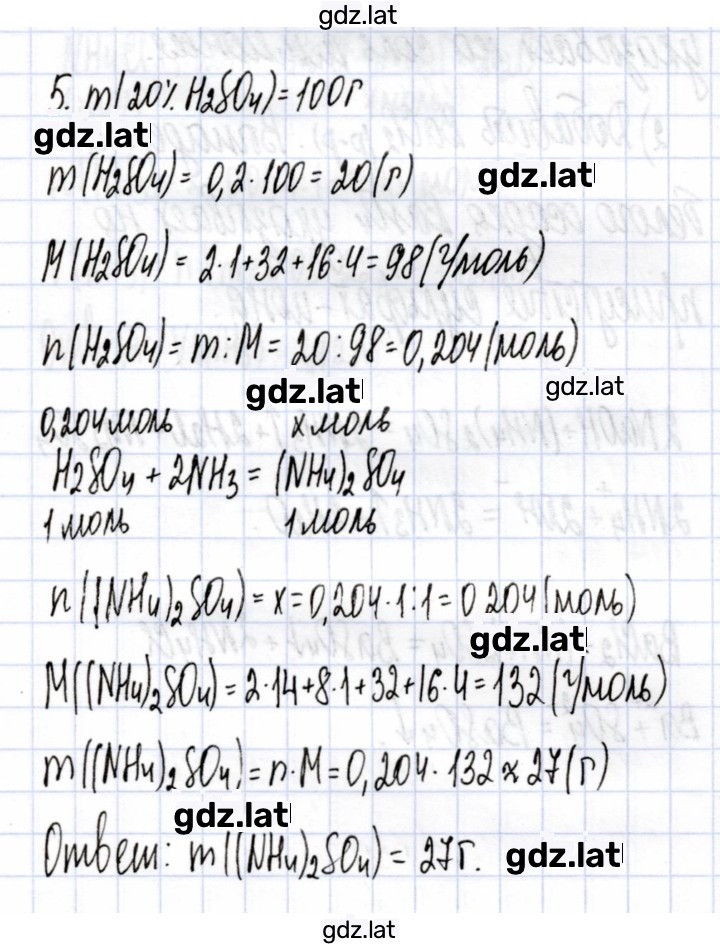 gdz.lat
5. m(20% H2SO4) = 100г
gdz.lat
m(H2SO4) = 0,2·100 = 20(г)
gdz.lat
M(H2SO4) = 2·1+32+16·4 = 98(г/моль)
n(H2SO4) = m:M = 20:98 = 0,204(моль)
gdz.lat
gdz.lat
0,204моль х моль
H2SO4 + 2NH3 = (NH4)2SO4
1 моль 1 моль
n((NH4)2SO4) = x = 0,204·1:1 = 0 204(моль)
gdz.lat
M((NH4)2SO4) = 2·14+8·1+32+16·4 = 132(г/моль)
m((NH4)2SO4) = n·M = 0,204·132 ≈ 27(г)
gdz.lat
Ответ: m((NH4)2SO4) = 27г.
gdz.lat
gdz.lat